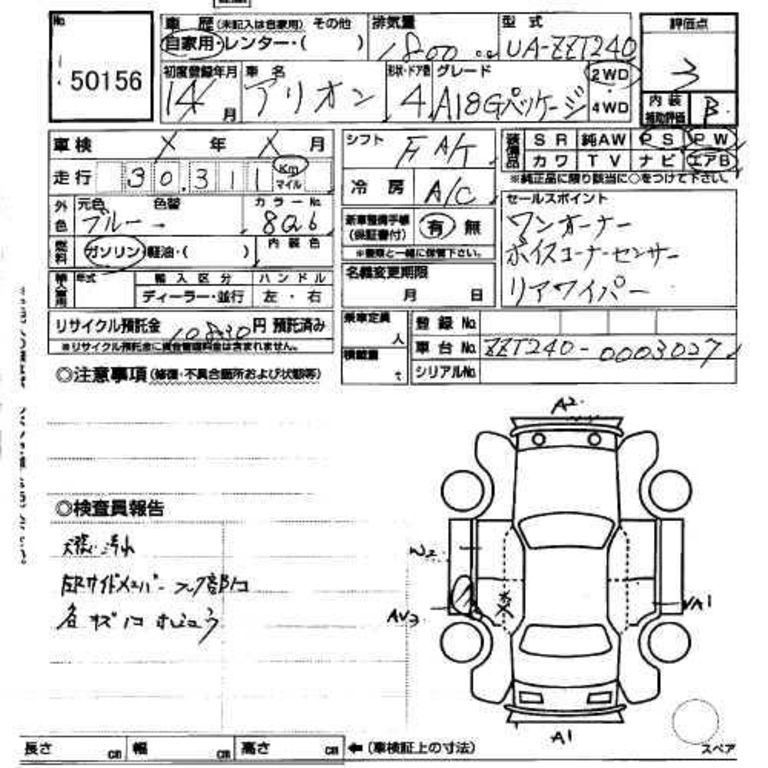 No. 50156
車 歴 (未記入は自家用) その他
自家用・レンター・( )
排気量 1800 cc
型 式 UA-ZZT240
評価点 3
初度登録年月 14年 月
車 名 アリオン
形状・ドア数 4
グレード A18Gパッケージ
2WD
4WD
内 装 補助評価 B
車 検 X 年 X 月
走 行 30.311 Km マイル
シフト FAT
冷 房 A/C
装備品 SR 純AW PS PW
カワ TV ナビ エアB
※純正品に限り該当に○をつけて下さい。
外色 元色 ブルー 色替
カラーNo. 8Q6
内 装 色
燃料 ガソリン・軽油・( )
新車整備手帳 (保証書付) 有 無
※車検と一緒に保管下さい。
セールスポイント
ワンオーナー
ボイスコーナーセンサー
リアワイパー
輸入車用 年式
輸 入 区 分 ハ ン ド ル
ディーラー・並行 左 ・ 右
名義変更期限
月 日
リサイクル預託金 10830円 預託済み
※リサイクル預託金に資金管理料金は含まれません。
乗車定員 人
積載量 t
登 録 No.
車 台 No. ZZT240-0003027
シリアルNo.
◎注意事項(修復・不具合箇所および状態等)
◎検査員報告
天張 汚れ
右Rサイドメンバー フック部凹
各キズ凹
A2
W2
AV3
VA1
A1
スペア
長さ cm 幅 cm 高さ cm ←(車検証上の寸法)